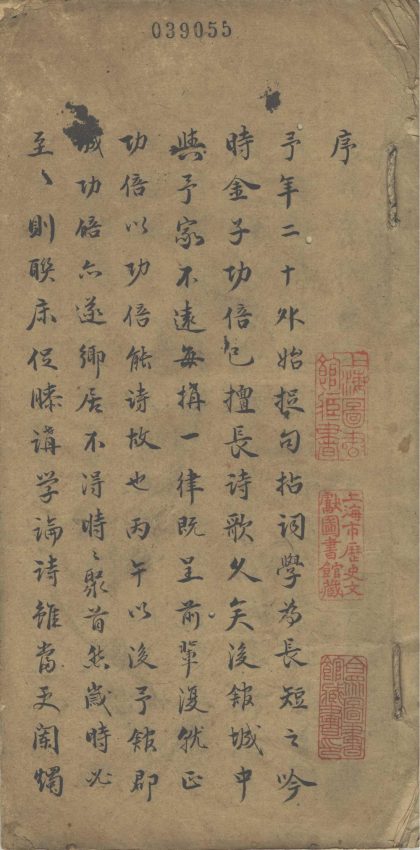 039055
序
予年二十外始捉句拈词學为長短之吟
時金子功倍已擅長詩歌久矣後館城中
與予家不遠每搆一律既呈前輩復就正
功倍以功倍能詩故也丙午以後予館郡
城功倍亦遂鄉居不得時〻聚首然歲時必
至〻則聯床促膝講学論詩雖當更闌燭
上海圖書館
上海市歷史文獻圖書館藏